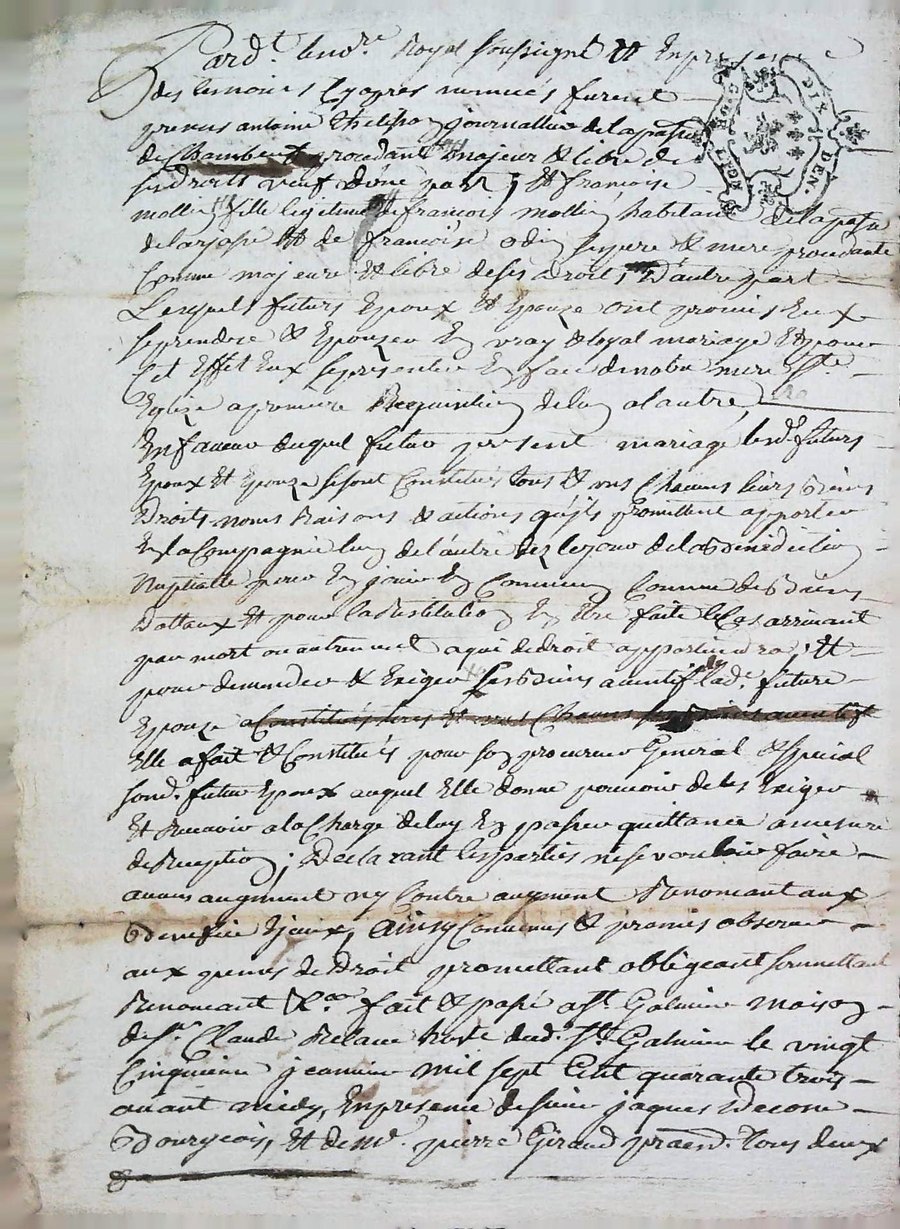 Pard.t le no.re Royal soussigné Et En presence
des temoins Cy apres nommés furent
presens antoine journallier de la parre
de Chambeuf procedant Majeur & libre de
ses droits veuf d'une part, Et françoise
mollin fille legitime de francois mollin habitant de la parre
Et de francoise odin ses pere & mere procedante
Comme majeure & libre de ses droits, D'autre part
Lesquels futurs Epoux Et Epouze ont promis Eux
se prendre & Epouzer En vray & loyal mariage Et pour
Cet Effet Eux se presenter En face de notre mere S.te
Eglize a premiere Requisition de l'un a l'autre,
En faveur duquel futur present mariage lesd. futurs
Epoux Et Epouze se sont Constitués tous & uns Chacuns leurs Biens
Droits noms Raisons & actions qu'ils promettent apporter
En la Compagnie l'un de l'autre dez le jour de la Benediction
Nuptialle pour En jouir En Commun Comme de Biens
Dottaux Et pour la Restitution En Etre faite le Cas arrivant
par mort ou autrement a qui de droit appartiendra, Et
pour demander & Exiger ses Biens a lad.e future
Epouze a Constitués tous Et uns Chacuns
Elle a fait & Constitués pour son procureur General & special
sond. futur Epoux auquel Elle donne pouvoir de les Exiger
Et Recevoir a la Charge de luy En passer quittance a mesure
de Reception; Declarant les parties ne se vouloir faire
aucun augment ny Contre augment Renoncant aux
Benefice D'iceux, Ainsy Convenus & promis observer
aux peines de Droit promettant obligeant soumettant
Renoncant &.a fait & passé a S.t Galmier maison
de s.r Claude Relave hoste dud. S.t Galmier le vingt
Cinquieme jeanvier mil sept Cent quarante trois
avant midy, En presence de sieur jaques Decosne
Bourgeois, Et de M.e pierre Giraud pratien. tous deux
G. DE LYON
DIX DEN.